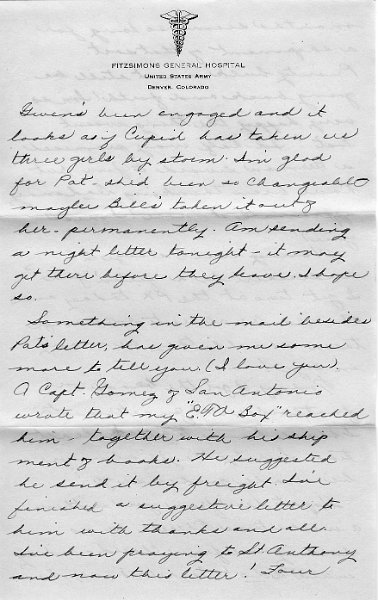 FITZSIMONS GENERAL HOSPITAL
UNITED STATES ARMY
DENVER, COLORADO
Gwen's been engaged and it
looks as if Cupid has taken us
three girls by storm. I'm glad
for Pat - she'd been so changeable
maybe Bill's taken it out of
her - permanently. Am sending
a night letter tonight - it may
get there before they leave. I hope
so.
Something in the mail besides
Pat's letter, has given me some
more to tell you (I love you).
A Capt. Gomez of San Antonio
wrote that my "ETA Box" reached
him - together with his ship
ment of books. He suggested
he send it by freight. I've
finished a suggestive letter to
him with thanks and all.
I've been praying to St. Anthony
and now this letter! Four